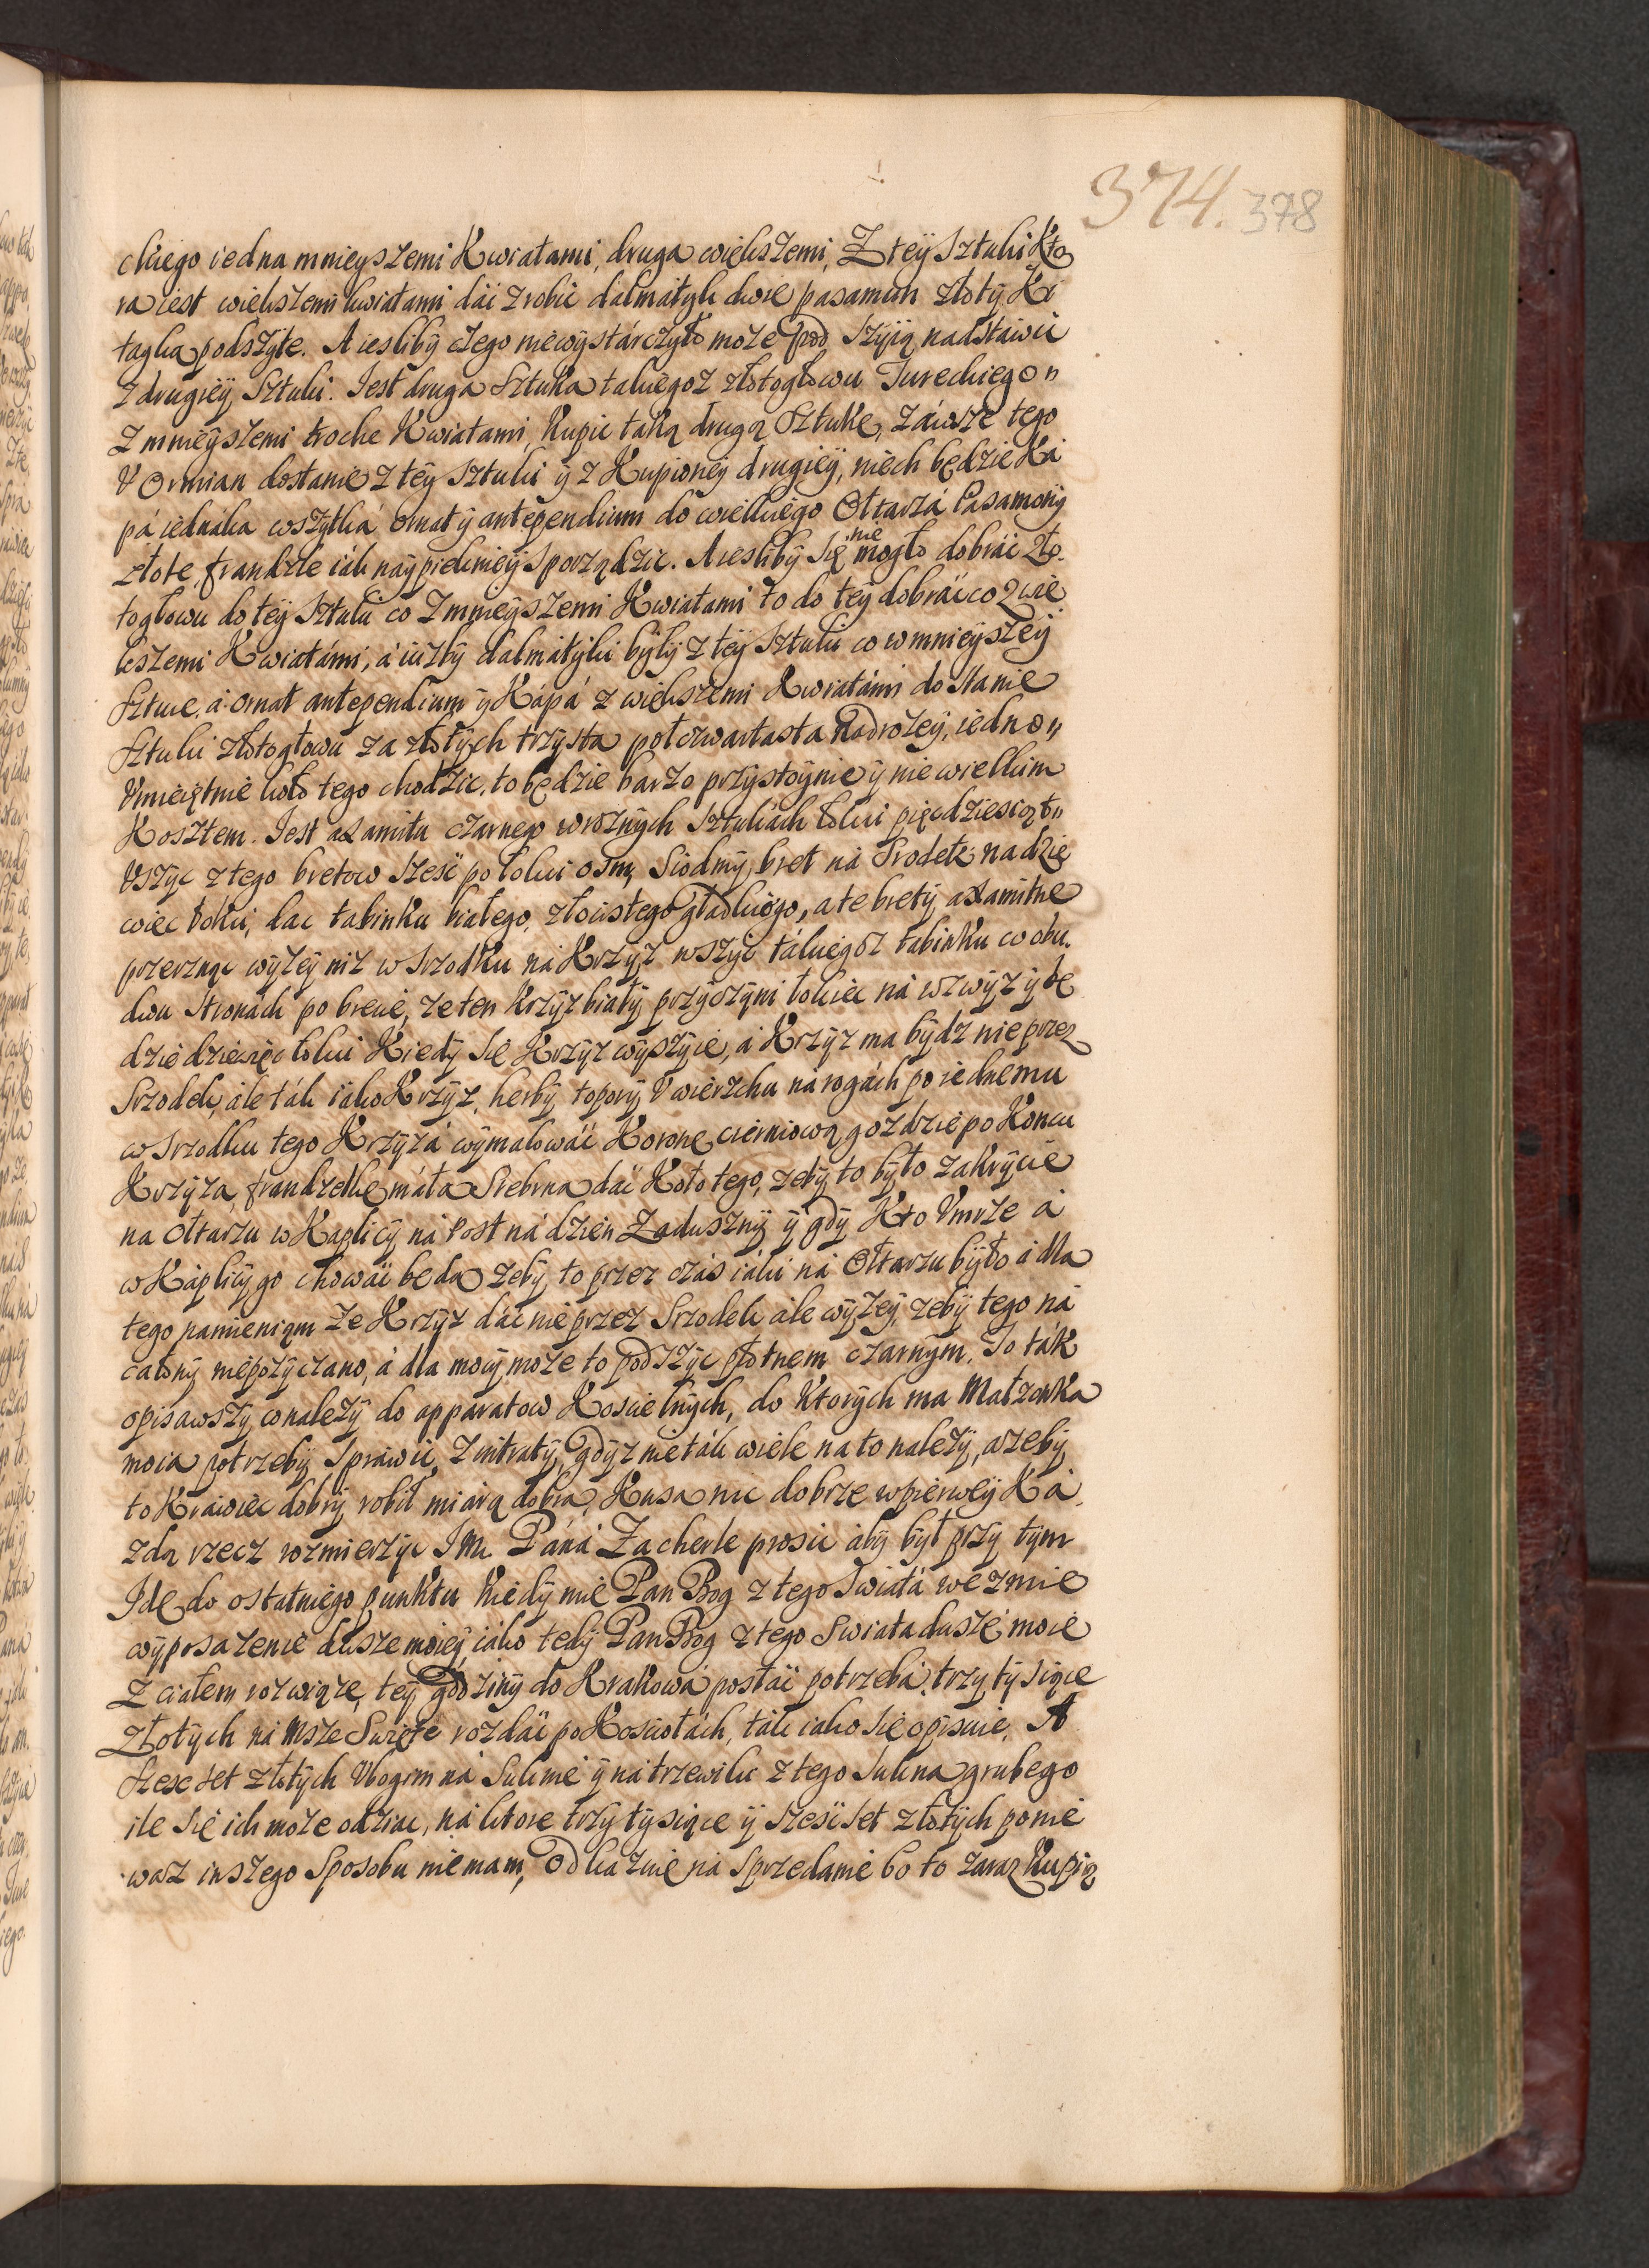 374. 378
ckiego iedna mnieyszemi Kwiatami, druga wiekszemi, Z tey Sztuki Kto
ra iest wiekszemi kwiatami dáć zrobić dálmátyk dwie pasaman złoty Ki
tayka podszyte. A iesliby czego niewystárczyło może pod Szyią nadstáwić
Z drugiey Sztuki. Iest druga Sztuka takiegoż złotogłowu Tureckiego
Z mnieyszemi troche Kwiatami, Kupic taką drugą Sztuke, záwsze tego
V Ormian dostanie z tey Sztuki y z Kupioney drugiey, niech będzie Ká
pá iednaka wszytká ornat y antependium do wielkiego Ołtarzá Pasamony
złote, frandzle iák naypiekniey Sporządzic. A iesliby Się nie mogło dobráć Zło
togłowu do tey Sztuki co Z mnieyszemi Kwiatami to do tey dobráć co Z wie
kszemi Kwiatámi, á iużby dalmátyki były z tey Sztuki co w mnieyszey
Sztuce, á ornat antependium y Kápá z wiekszemi Kwiatámi dostanie
Sztuki złotogłowu za złotych trzysta połczwartasta Nadrożey, iedno
Vmieiętnie koło tego chodzic, to będzie barzo przystoynie y niewielkim
Kosztem. Iest axamitu czarnego w rożnych Sztukách łokci pięcdziesiąt
Vszyc z tego bretow Sześć po łokci osm, Siodmy bret ná Srodek ná dzie
wiec łokci, dac tabinku białego, złocistego gładkiego, a te brety axamitne
przerznąc wyżey niż w Srzodku ná Krzyż wszyć tákiegoż tabinku w obu
dwu Stronách po brecie, że ten Krzyż biały przyczyni łokiec ná wzwyż y bę
dzie dziewięc łokci Kiedy Się Krzyż wyszyie, á Krzyż ma bydz nie przez
Srzodek, ále ták iáko Krzyż, herby topory V wierzchu ná rogách po iednemu
w Srzodku tego Krzyżá wymalowáć Korone cierniową goździe po Koncu
Krzyża, frandzelke mała Srebrna dáć Koło tego, żeby to było zakrycie
na Ołtarzu w Kaplicy ná Post ná dzień Zaduszny y gdy Kto Vmrze á
w Káplicy go chowáć beda żeby to przez czás iáki ná Ołtarzu było á dla
tego pamieniąm że Krzyż dáć nie przez Srzodek ále wyżey, żeby tego ná
całony niepożyczano, á dla mocy może to podszyc płotnem czarnym. To ták
opisawszy co należy do apparatow Koscielnych, do Ktorych ma Małżonka
moia potrzeby Spráwić, Z intraty, gdyż nie ták wiele na to należy, a żeby
to Kráwiec dobry robił miárą dobra, Kusa nic dobrze w pierwey Ká
żdą rzecz rozmierzyc I M. Páná Zacherle prosic áby był przy tym
Ide do ostatniego punktu kiedy mie Pan Bog z tego Swiátá wezmie
wyposażenie dusze moiey, iáko tedy Pan Bog z tego Swiata dusze moie
Z ciałem rozwiąże, tey godziny do Krakowá posłáć potrzebá, trzy tysiące
Złotych ná Msze Swięte rozdáć po Kosciołách, ták iako się opisuie, A
Szescset złotych Vbogim ná Suknie y ná trzewiki z tego Sukna grubego
ile Się ich może odziac, ná ktore trzy tysiące y Sześćset złotych ponie
wasz inszego Sposobu nie mam, odkazuie ná Sprzedanie bo to zaraz Kupią